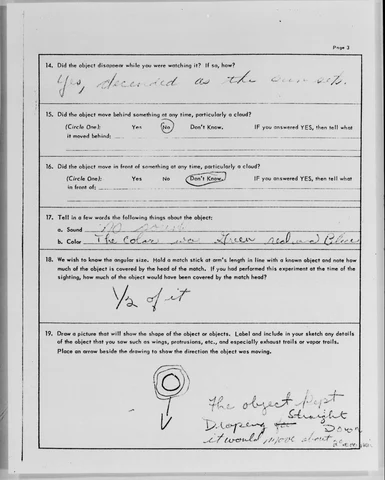 Page 3
14. Did the object disappear while you were watching it? If so, how?
Yes, decended as the sun sets.
15. Did the object move behind something at any time, particularly a cloud?
(Circle One): Yes No Don't Know. IF you answered YES, then tell what
it moved behind:
16. Did the object move in front of something at any time, particularly a cloud?
(Circle One): Yes No Don't Know. IF you answered YES, then tell what
in front of:
17. Tell in a few words the following things about the object:
a. Sound No sound
b. Color The color was Green red and Blue
18. We wish to know the angular size. Hold a match stick at arm's length in line with a known object and note how
much of the object is covered by the head of the match. If you had performed this experiment at the time of the
sighting, how much of the object would have been covered by the match head?
1/2 of it
19. Draw a picture that will show the shape of the object or objects. Label and include in your sketch any details
of the object that you saw such as wings, protrusions, etc., and especially exhaust trails or vapor trails.
Place an arrow beside the drawing to show the direction the object was moving.
The object Kept
Droping Straight
Down
it would move about